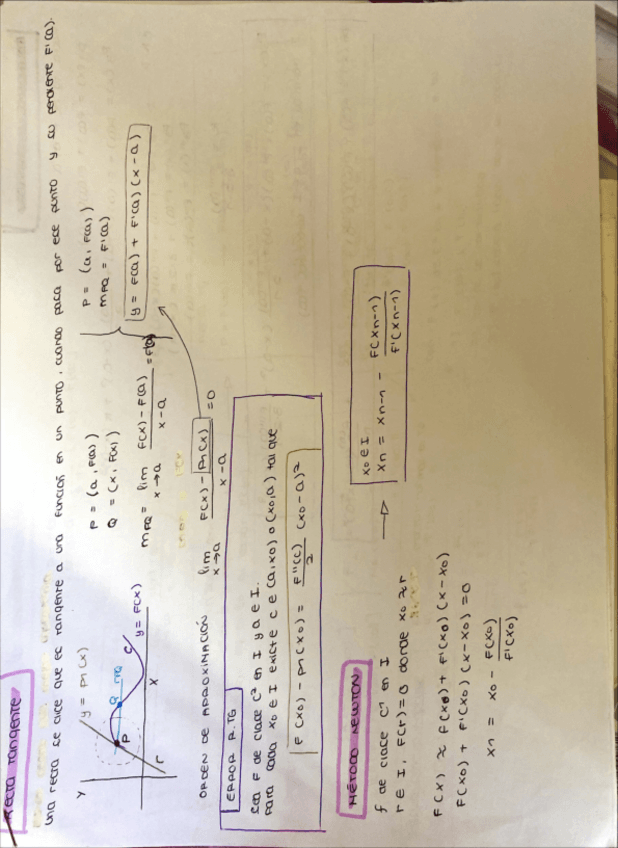 RECTA TANGENTE
una recta se dice que es tangente a una función en un punto, cuando pasa por ese punto y su pendiente F'(a).
y
y = Pn(x)
P
Q
r
x
y = F(x)
P = (a, F(a))
Q = (x, F(x))
mPQ = lim x→a F(x) - F(a) / x - a = F'(a)
P = (a, F(a))
mPQ = F'(a)
y = F(a) + F'(a) (x - a)
ORDEN DE APROXIMACIÓN
lim x→a F(x) - Pn(x) / x - a = 0
ERROR R.TG
Sea F de clase C² en I y a ∈ I.
Para cada x0 ∈ I existe c ∈ (a, x0) o (x0, a) tal que
F(x0) - Pn(x0) = F''(c) / 2 (x0 - a)²
MÉTODO NEWTON
f de clase C¹ en I
r ∈ I, F(r) = 0 donde x0 ≈ r
→
x0 ∈ I
xn = xn-1 - F(xn-1) / F'(xn-1)
F(x) ≈ F(x0) + F'(x0) (x - x0)
F(x0) + F'(x0) (x - x0) = 0
x1 = x0 - F(x0) / F'(x0)